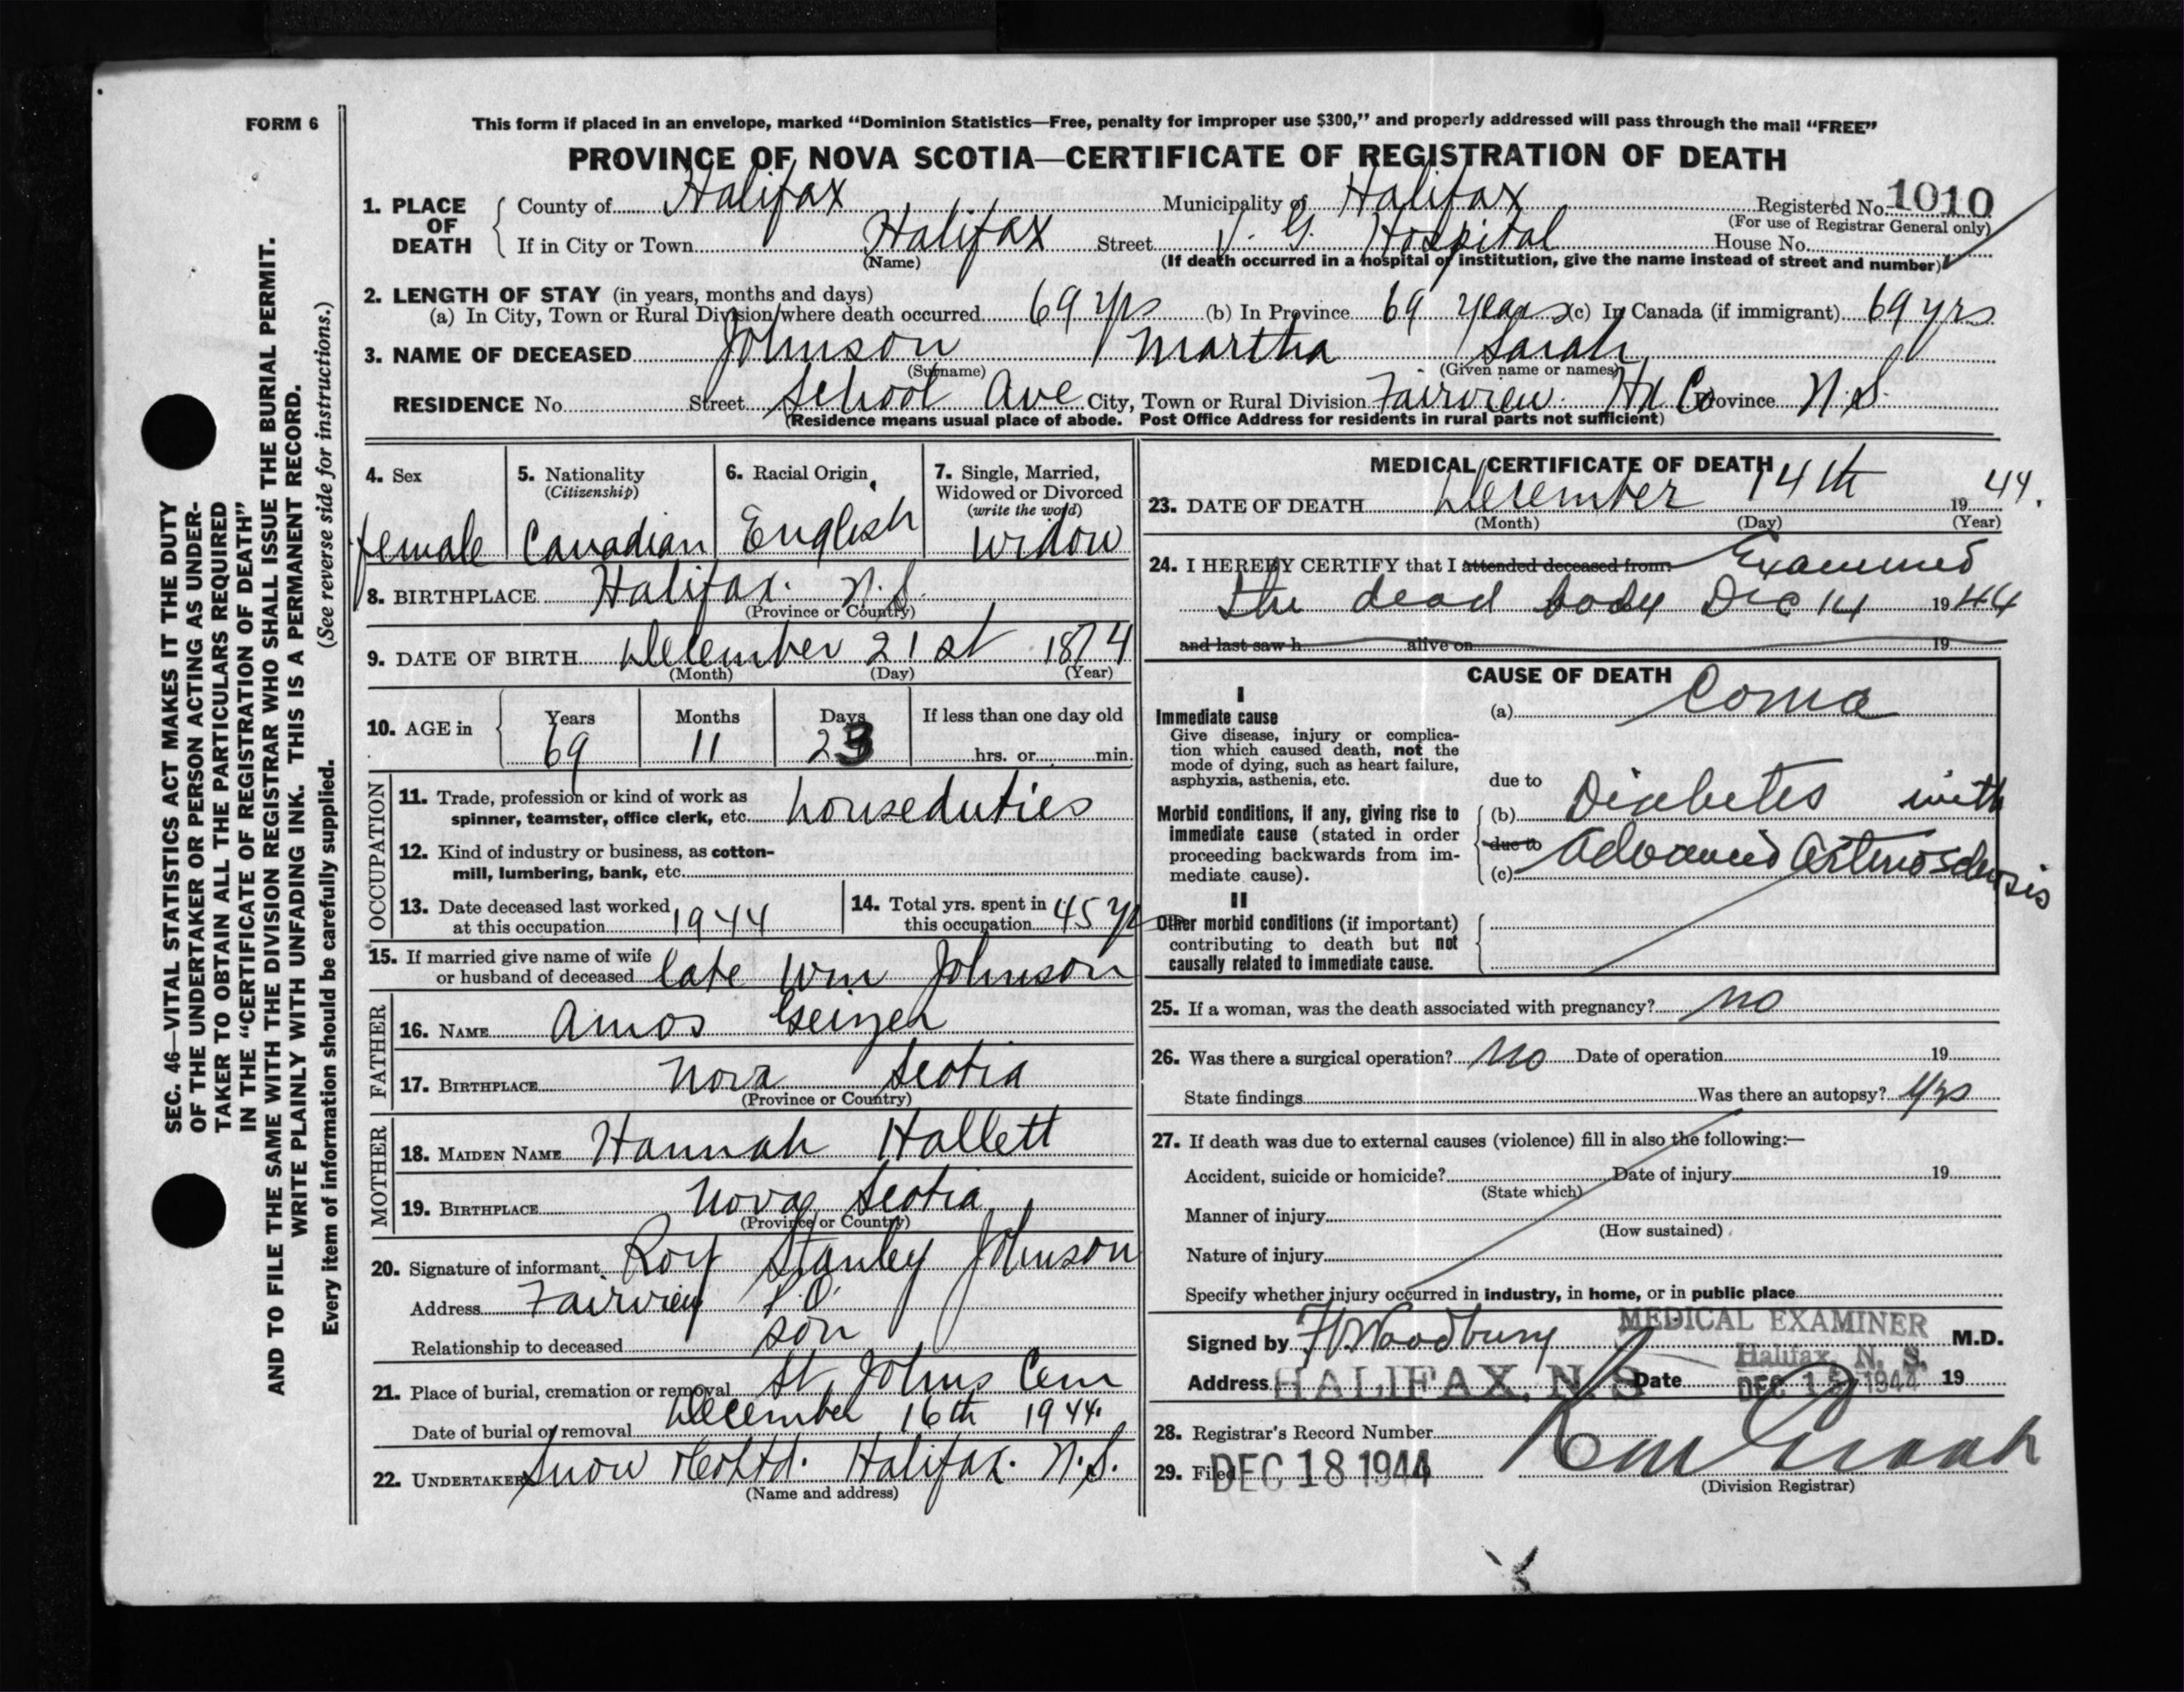 FORM 6
This form if placed in an envelope, marked “Dominion Statistics—Free, penalty for improper use $300,” and properly addressed will pass through the mail “FREE”
PROVINCE OF NOVA SCOTIA—CERTIFICATE OF REGISTRATION OF DEATH
1. PLACE OF DEATH County of Halifax Municipality of Halifax Registered No. 1010
(For use of Registrar General only)
If in City or Town Halifax Street V. G. Hospital House No.
(Name) (If death occurred in a hospital or institution, give the name instead of street and number)
2. LENGTH OF STAY (in years, months and days)
(a) In City, Town or Rural Division where death occurred 69 yrs (b) In Province 69 years (c) In Canada (if immigrant) 69 yrs
3. NAME OF DECEASED Johnson Martha Sarah
(Surname) (Given name or names)
RESIDENCE No. Street School Ave City, Town or Rural Division Fairview Hx Co Province N.S.
(Residence means usual place of abode. Post Office Address for residents in rural parts not sufficient)
4. Sex female
5. Nationality (Citizenship) Canadian
6. Racial Origin English
7. Single, Married, Widowed or Divorced (write the word) widow
8. BIRTHPLACE Halifax. N.S.
(Province or Country)
9. DATE OF BIRTH December 21st 1874
(Month) (Day) (Year)
10. AGE in Years 69 Months 11 Days 23 If less than one day old
hrs. or min.
OCCUPATION
11. Trade, profession or kind of work as
spinner, teamster, office clerk, etc. houseduties
12. Kind of industry or business, as cotton-
mill, lumbering, bank, etc.
13. Date deceased last worked at this occupation 1944
14. Total yrs. spent in this occupation 45 yr
15. If married give name of wife
or husband of deceased late Wm Johnson
FATHER
16. NAME Amos
17. BIRTHPLACE Nova Scotia
(Province or Country)
MOTHER
18. MAIDEN NAME Hannah Hallett
19. BIRTHPLACE Nova Scotia
(Province or Country)
20. Signature of informant Roy Stanley Johnson
Address Fairview P.O.
Relationship to deceased son
21. Place of burial, cremation or removal St. Johns Cem
Date of burial or removal December 16th 1944.
22. UNDERTAKER Snow & Co Ltd. Halifax. N.S.
(Name and address)
MEDICAL CERTIFICATE OF DEATH
23. DATE OF DEATH December 14th 19 44.
(Month) (Day) (Year)
24. I HEREBY CERTIFY that I attended deceased from Examined
the dead body Dec 14 19 44
and last saw h alive on 19
CAUSE OF DEATH
I
Immediate cause (a) Coma
Give disease, injury or complica-
tion which caused death, not the
mode of dying, such as heart failure,
asphyxia, asthenia, etc. due to
Morbid conditions, if any, giving rise to (b) Diabetes with
immediate cause (stated in order due to
proceeding backwards from im-
mediate cause). (c) Advanced Arteriosclerosis
II
Other morbid conditions (if important)
contributing to death but not
causally related to immediate cause.
25. If a woman, was the death associated with pregnancy? no
26. Was there a surgical operation? no Date of operation 19
State findings Was there an autopsy? yes
27. If death was due to external causes (violence) fill in also the following:—
Accident, suicide or homicide? Date of injury 19
(State which)
Manner of injury
(How sustained)
Nature of injury
Specify whether injury occurred in industry, in home, or in public place
MEDICAL EXAMINER
Signed by Woodbury M.D.
Halifax, N. S.
Address HALIFAX, N. S Date DEC 15 1944 19
28. Registrar's Record Number
29. Filed DEC 18 1944
(Division Registrar)
SEC. 46—VITAL STATISTICS ACT MAKES IT THE DUTY
OF THE UNDERTAKER OR PERSON ACTING AS UNDER-
TAKER TO OBTAIN ALL THE PARTICULARS REQUIRED
IN THE “CERTIFICATE OF REGISTRATION OF DEATH”
AND TO FILE THE SAME WITH THE DIVISION REGISTRAR WHO SHALL ISSUE THE BURIAL PERMIT.
WRITE PLAINLY WITH UNFADING INK. THIS IS A PERMANENT RECORD.
Every item of information should be carefully supplied. (See reverse side for instructions.)